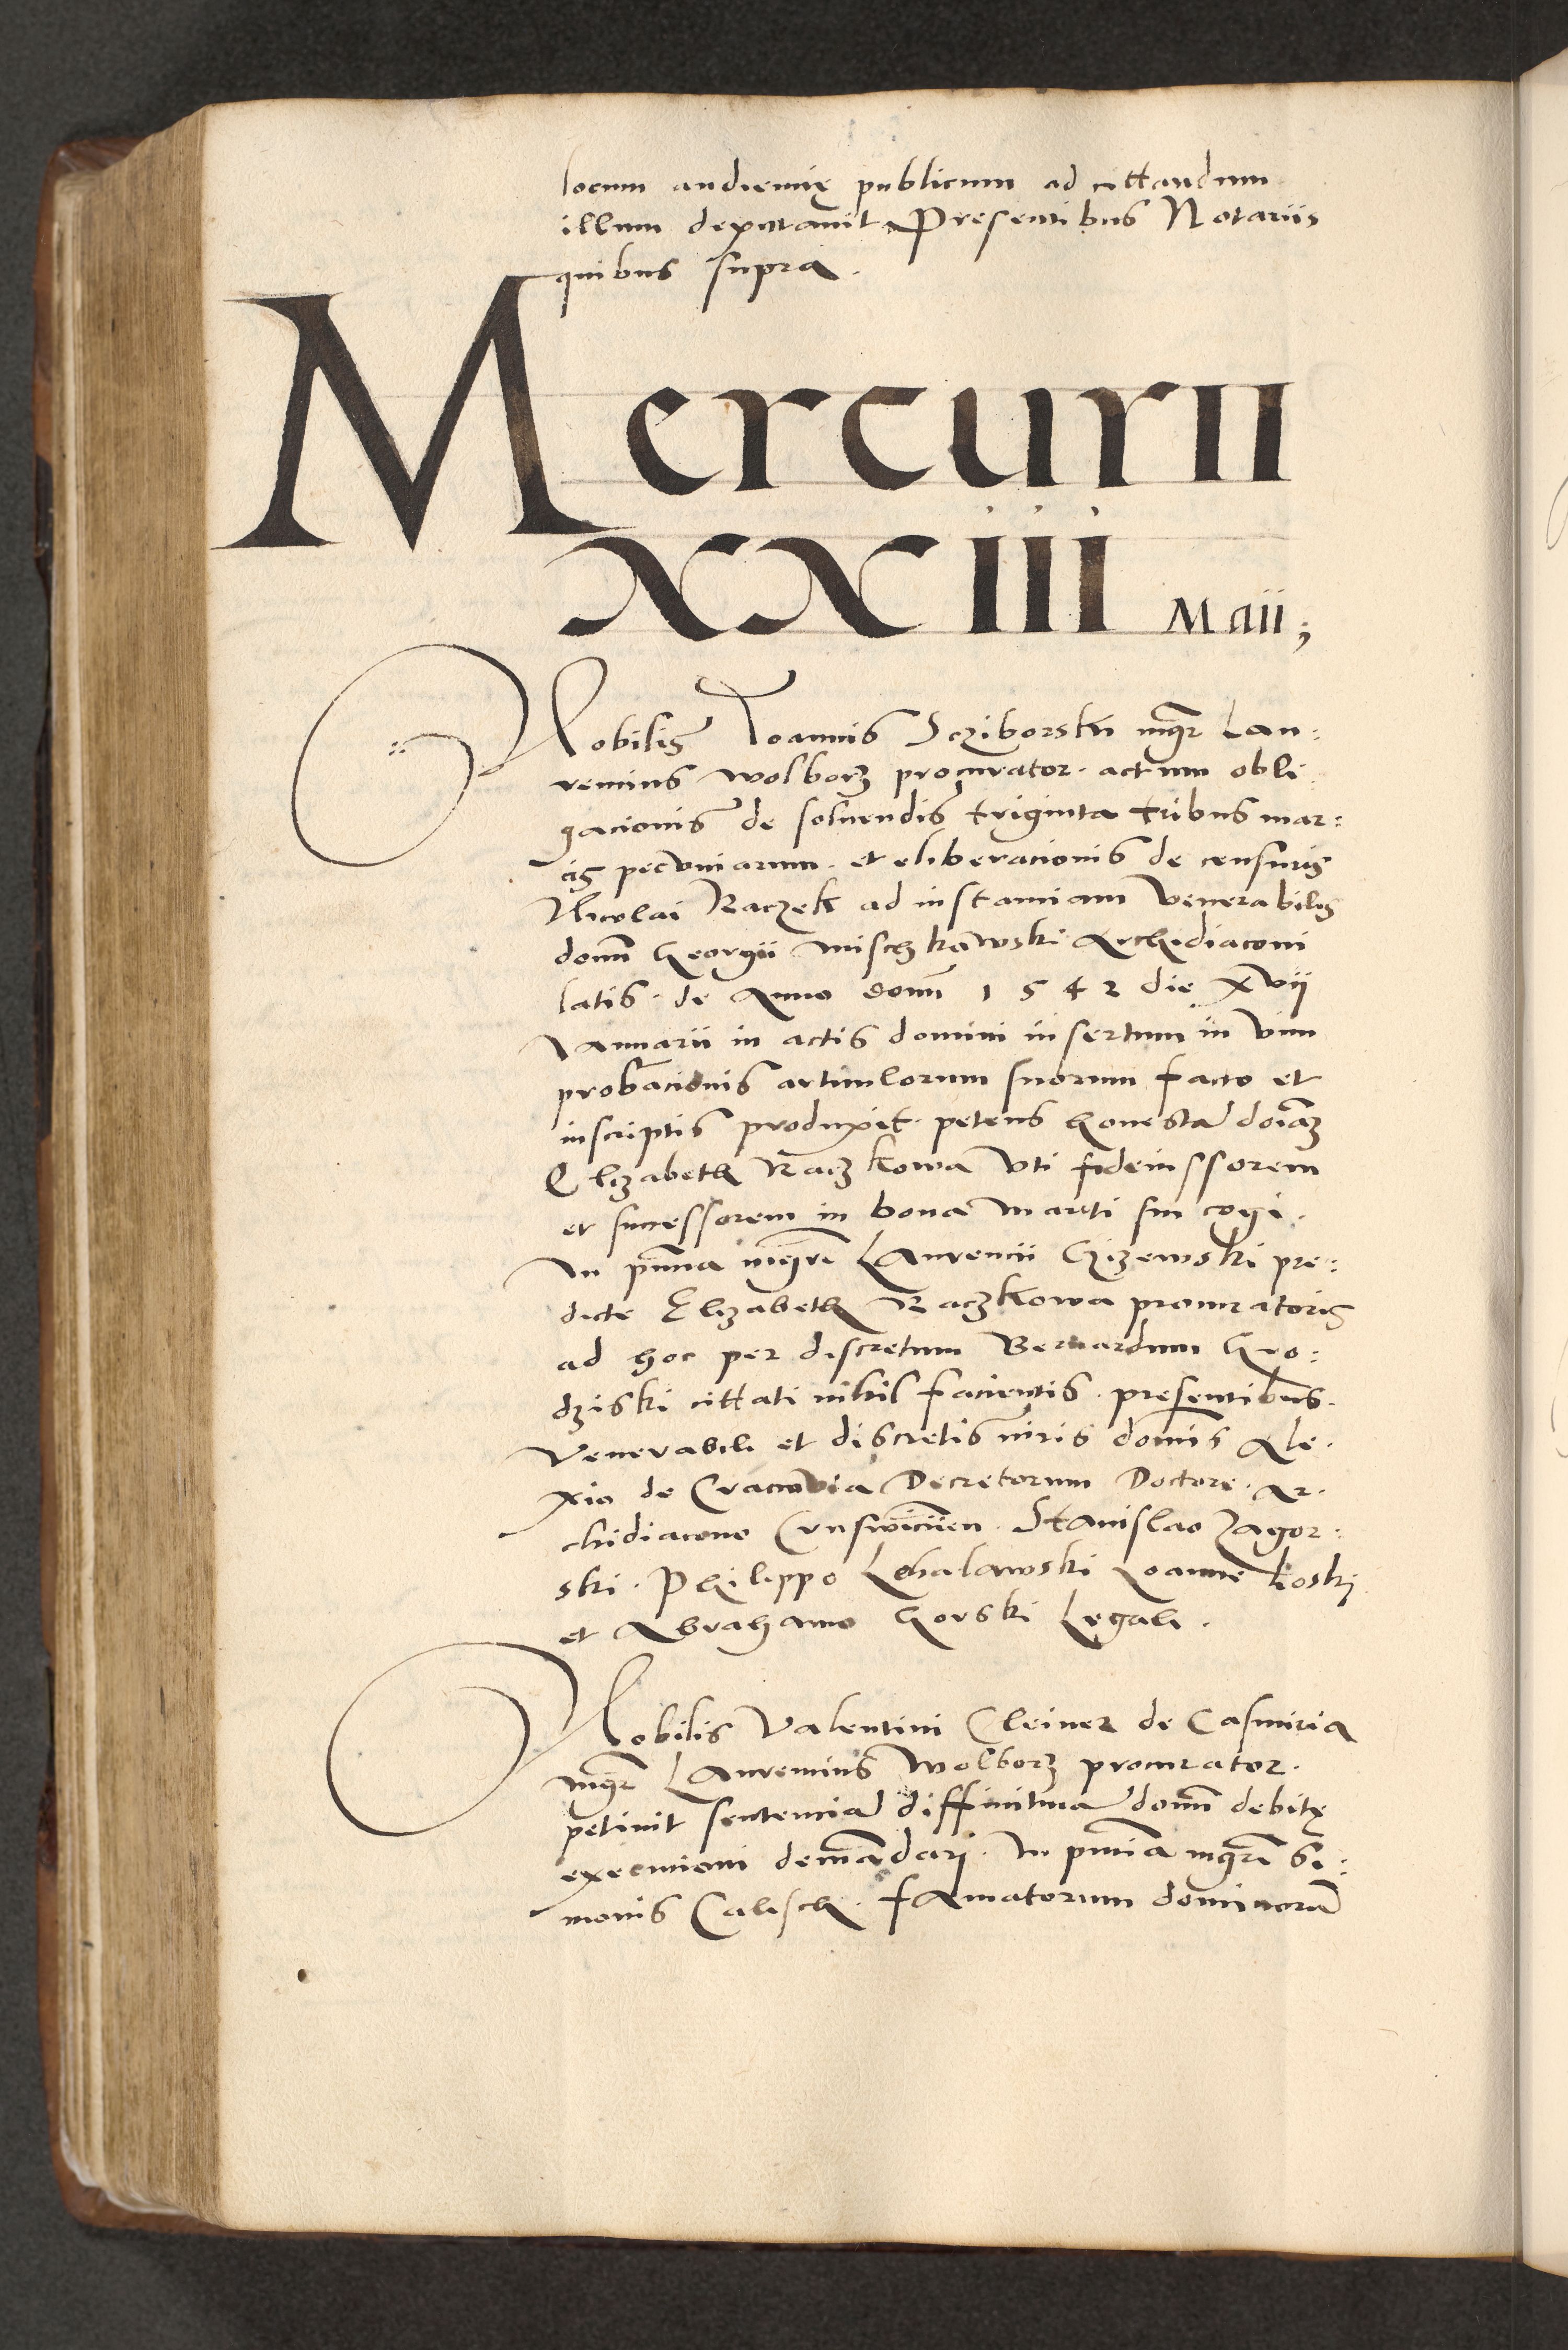 locum audiencię publicum ad cittandum
illum deputauit Presentibus Notariis
quibus supra.
Mercurii
xxiii Maii;
Nobilis Ioannis Scziborski mgr̄ Lau:
rencius wolborz procurator. actum obli
gacionis de soluendis triginta tribus mar:
cis pecuniarum. et eliberacionis de censuris
Nicolai Raczek ad instanciam Venerabilis
domĩ Georgii mischkawski Archidiaconi
latis. de Anno domĩ 1542 die xvij
Ianuarii in actis domini insertum in vim
probacionis articulorum suorum facto et
inscriptis produxit. petens honestã doĩaz
Elizabeth Raczkowa vti fideiussorem
et successorem in bona mariti sui cogi.
In pñtia mgrĩ Laurencii Czizewski pre:
dicte Elizabeth Raczkowa procuratoris
ad hoc per discretum Bernardum Gro:
dziski cittati nihil facientis. presentibus.
Venerabili et discretis viris domĩs Ale.
xio de Cracovia Decretorum Doctore. Ar.
chidiacono Crusvicieñ. Stanislao Zagor.
ski. Philippo Lohalawski Ioanne koski
et Abrahamo Gorski Legali.
Nobilis Valentini Cleiner de Casmiria
mgr̄ Laurencius Wolborz procurator.
petiuit sentenciã diffinitiuã domĩ debitę
execucioni demãdari. In pñtia mgrĩ Si:
monis Calisch. famatorum dominorũ